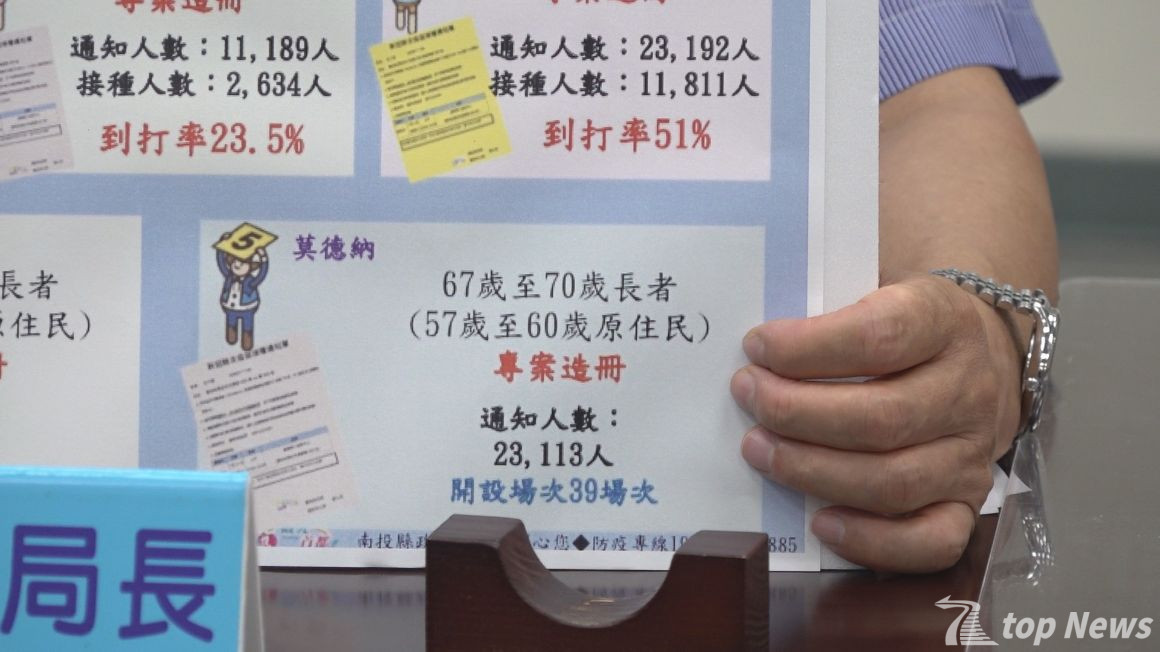 專案造冊
通知人數：11,189人
接種人數：2,634人
到打率23.5%
專案造冊
通知人數：23,192人
接種人數：11,811人
到打率51%
長者
住民）
5
莫德納
67歲至70歲長者
(57歲至60歲原住民)
專案造冊
通知人數：
23,113人
開設場次39場次
南投縣政
心您◆防疫專線19
885
局長
top News